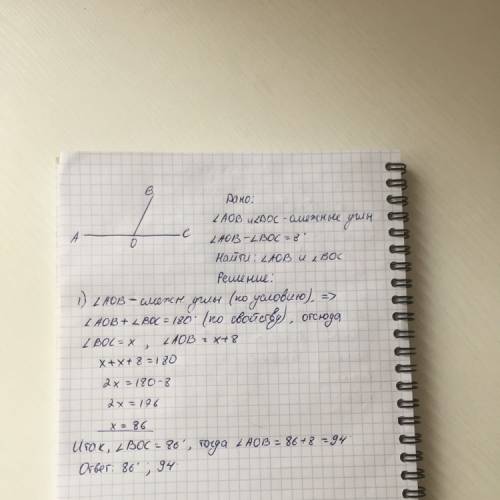 B
A O C
Дано:
∠AOB и ∠BOC - смежные углы
∠AOB - ∠BOC = 8°
Найти: ∠AOB и ∠BOC
Решение:
1) ∠AOB - смежн углы (по условию), =>
∠AOB + ∠BOC = 180° (по свойству), отсюда
∠BOC = x, ∠AOB = x+8
x+x+8=180
2x=180-8
2x=176
x=86
Итак, ∠BOC = 86°, тогда ∠AOB = 86+8=94°
Ответ: 86°, 94